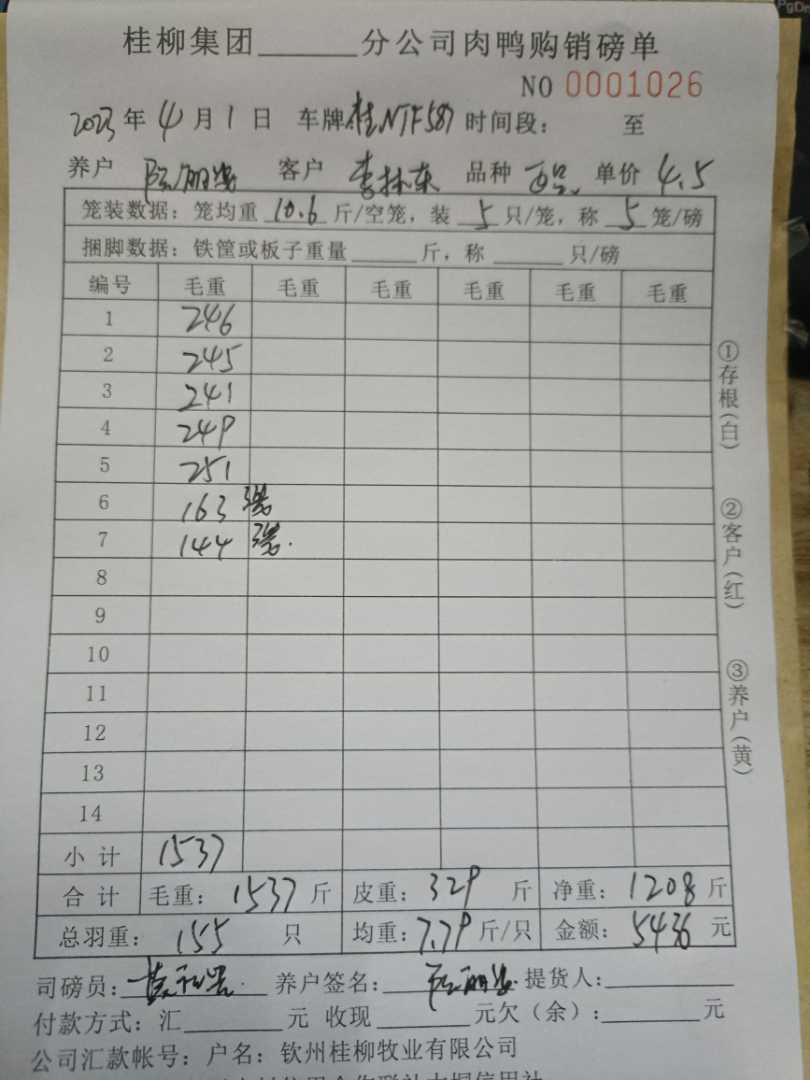 桂柳集团______分公司肉鸭购销磅单
NO 0001026
2023年4月1日 车牌桂NTF587 时间段: 至
养户 客户 李林东 品种 单价 4.5
笼装数据:笼均重 10.6 斤/空笼,装 5 只/笼,称 5 笼/磅
捆脚数据:铁筐或板子重量______斤,称______只/磅
编号 毛重 毛重 毛重 毛重 毛重 毛重
1 246
2 245
3 241
4 249
5 251
6 163 3笼
7 144 3笼.
8
9
10
11
12
13
14
小计 1537
合计 毛重: 1537 斤 皮重: 329 斤 净重: 1208 斤
总羽重: 155 只 均重: 7.79 斤/只 金额: 5436 元
司磅员: 养户签名: 提货人:______
付款方式:汇______元 收现______元欠(余):______元
公司汇款帐号:户名:钦州桂柳牧业有限公司
①存根(白)
②客户(红)
③养户(黄)
PgDn